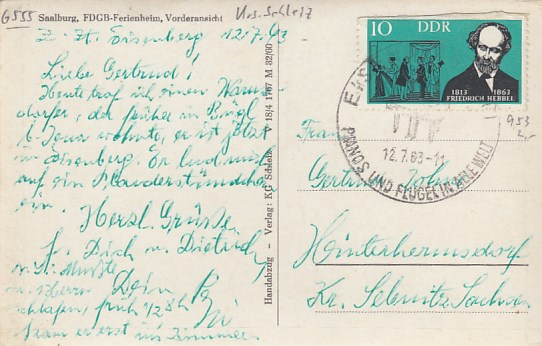 6555
Saalburg, FDGB-Ferienheim, Vorderansicht
Krs. Schleiz
Z. Zt. Eisenberg 12.7.63
Liebe Gertrud!
Heute traf ich einen
der früher in
b. Jena wohnte, er ist jetzt
in Eisenberg. Er lud mich
auf ein Plauderstündchen
ein.
Herzl. Grüße
f. Dich u. Dietrich
Dein
schlafen, früh 1/2 8h
kam er erst ins Zimmer
Handabzug - Verlag: KG Schleiz V 18/4 1767 M 32/60
10 DDR
1813 1863
FRIEDRICH HEBBEL
12.7.63-11
PIANOS UND FLÜGEL IN ALLE WELT
953
Frau
Gertrud
Hinterhermsdorf
Kr. Sebnitz Sachsen